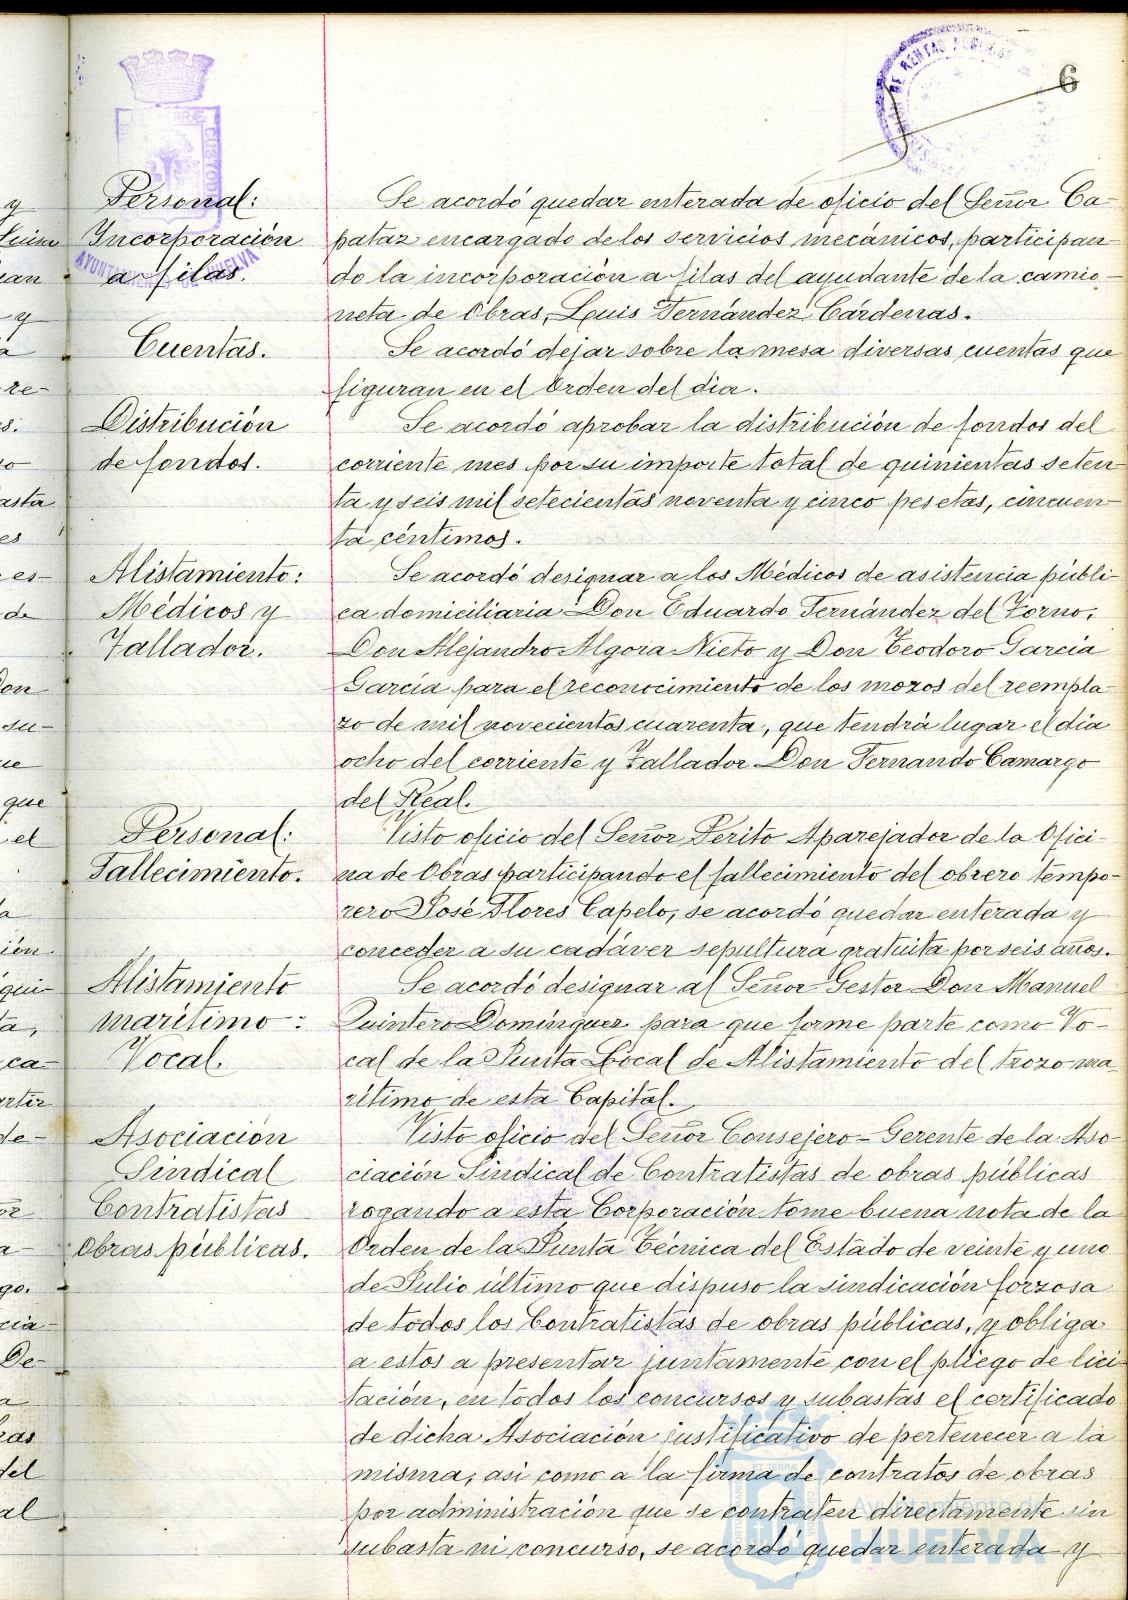 6
Personal:
Incorporación
a filas.
Se acordó quedar enterada de oficio del Señor Ca-
pataz encargado de los servicios mecánicos, participan-
do la incorporación a filas del ayudante de la camio-
neta de Obras, Luis Fernández Cárdenas.
Cuentas.
Se acordó dejar sobre la mesa diversas cuentas que
figuran en el Orden del dia.
Distribución
de fondos.
Se acordó aprobar la distribución de fondos del
corriente mes por su importe total de quinientas seten-
ta y seis mil setecientas noventa y cinco pesetas, cincuen-
ta céntimos.
Alistamiento:
Médicos y
Tallador.
Se acordó designar a los Médicos de asistencia públi-
ca domiciliaria Don Eduardo Fernández del Torno,
Don Alejandro Algora Nieto y Don Teodoro García
García para el reconocimiento de los mozos del reempla-
zo de mil novecientos cuarenta, que tendrá lugar el día
ocho del corriente y Tallador Don Fernando Camargo
del Real.
Personal:
Fallecimiento.
Visto oficio del Señor Perito Aparejador de la Ofici-
na de Obras participando el fallecimiento del obrero tempo-
rero José Flores Capelo, se acordó quedar enterada y
conceder a su cadáver sepultura gratuita por seis años.
Alistamiento
marítimo:
Vocal.
Se acordó designar al Señor Gestor Don Manuel
Quintero Domínguez para que forme parte como Vo-
cal de la Junta Local de Alistamiento del trozo ma
rítimo de esta Capital.
Asociación
Sindical
Contratistas
Obras públicas.
Visto oficio del Señor Consejero-Gerente de la Aso-
ciación Sindical de Contratistas de obras públicas
rogando a esta Corporación tome buena nota de la
Orden de la Junta Técnica del Estado de veinte y uno
de Julio último que dispuso la sindicación forzosa
de todos los Contratistas de obras públicas, y obliga
a estos a presentar juntamente con el pliego de lici
tación, en todos los concursos y subastas el certificado
de dicha Asociación justificativo de pertenecer a la
misma, asi como a la firma de contratos de obras
por administración que se contraten directamente sin
subasta ni concurso, se acordó quedar enterada y
AYUNTAMIENTO DE HUELVA
Ayuntamiento de
HUELVA